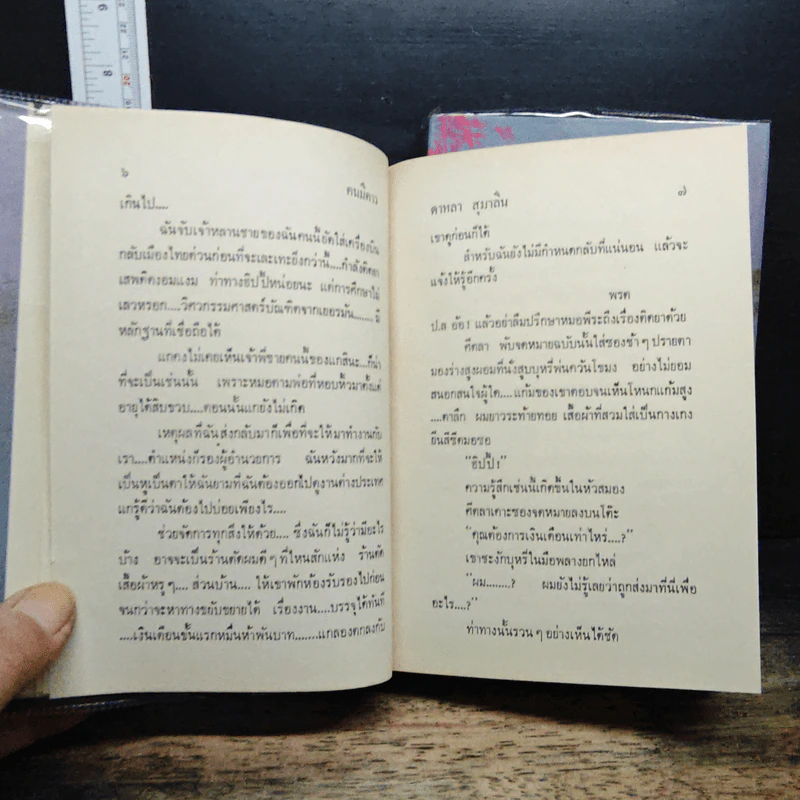 ๖
คนมีคาว
เกินไป....
ฉันจับเจ้าหลานชายของฉันคนนี้ยัดใส่เครื่องบิน
กลับเมืองไทยด่วนก่อนที่จะเละเทะยิ่งกว่านี้....กำลังติดเหล้า
เสพติดงอมแงม ท่าทางฮิปปี้หน่อยนะ แต่การศึกษาไม่
เลวหรอก....วิศวกรรมศาสตร์บัณฑิตจากเยอรมัน.......มี
หลักฐานที่เชื่อถือได้
แกคงไม่เคยเห็นเจ้าพี่ชายคนนี้ของแกสินะ....ก็น่า
ที่จะเป็นเช่นนั้น เพราะหมอตามพ่อที่หอบหิ้วมาตั้งแต่
อายุได้สิบขวบ....ตอนนั้นแกยังไม่เกิด
เหตุผลที่ฉันส่งกลับมาก็เพื่อที่จะให้มาทำงานกับ
เรา....ตำแหน่งก็รองผู้อำนวยการ ฉันหวังมากที่จะให้
เป็นหูเป็นตาให้ฉันยามที่ฉันต้องออกไปดูงานต่างประเทศ
แกรู้ดีว่าฉันต้องไปบ่อยเพียงไร....
ช่วยจัดการทุกสิ่งให้ด้วย.... ซึ่งฉันก็ไม่รู้ว่ามีอะไร
บ้าง อาจจะเป็นร้านตัดผมดี ๆ ที่ไหนสักแห่ง ร้านตัด
เสื้อผ้าหรู ๆ.... ส่วนบ้าน.... ให้เขาพักห้องรับรองไปก่อน
จนกว่าจะหาทางขยับขยายได้ เรื่องงาน....บรรจุได้ทันที
....เงินเดือนขั้นแรกหมื่นห้าพันบาท.......แกลองตกลงกับ
ดาหลา สุมาลิน
๗
เขาดูก่อนก็ได้
สำหรับฉันยังไม่มีกำหนดกลับที่แน่นอน แล้วจะ
แจ้งให้รู้อีกครั้ง
พรต
ป.ล อ้อ! แล้วอย่าลืมปรึกษาหมอพีระถึงเรื่องติดยาด้วย
ศีตลา พับจดหมายฉบับนั้นใส่ซองช้า ๆ ปรายตา
มองร่างสูงผอมที่นั่งสูบบุหรี่พ่นควันโขมง อย่างไม่ยอม
สนอกสนใจผู้ใด....แก้มของเขาตอบจนเห็นโหนกแก้มสูง
....ตาลึก ผมยาวระท้ายทอย เสื้อผ้าที่สวมใส่เป็นกางเกง
ยีนสีซีดมอซอ
"ฮิปปี้!"
ความรู้สึกเช่นนี้เกิดขึ้นในหัวสมอง
ศีตลาเคาะซองจดหมายลงบนโต๊ะ
"คุณต้องการเงินเดือนเท่าไหร่....?"
เขาชะงักบุหรี่ในมือพลางยกไหล่
"ผม........? ผมยังไม่รู้เลยว่าถูกส่งมาที่นี่เพื่อ
อะไร....?"
ท่าทางนั้นรวน ๆ อย่างเห็นได้ชัด